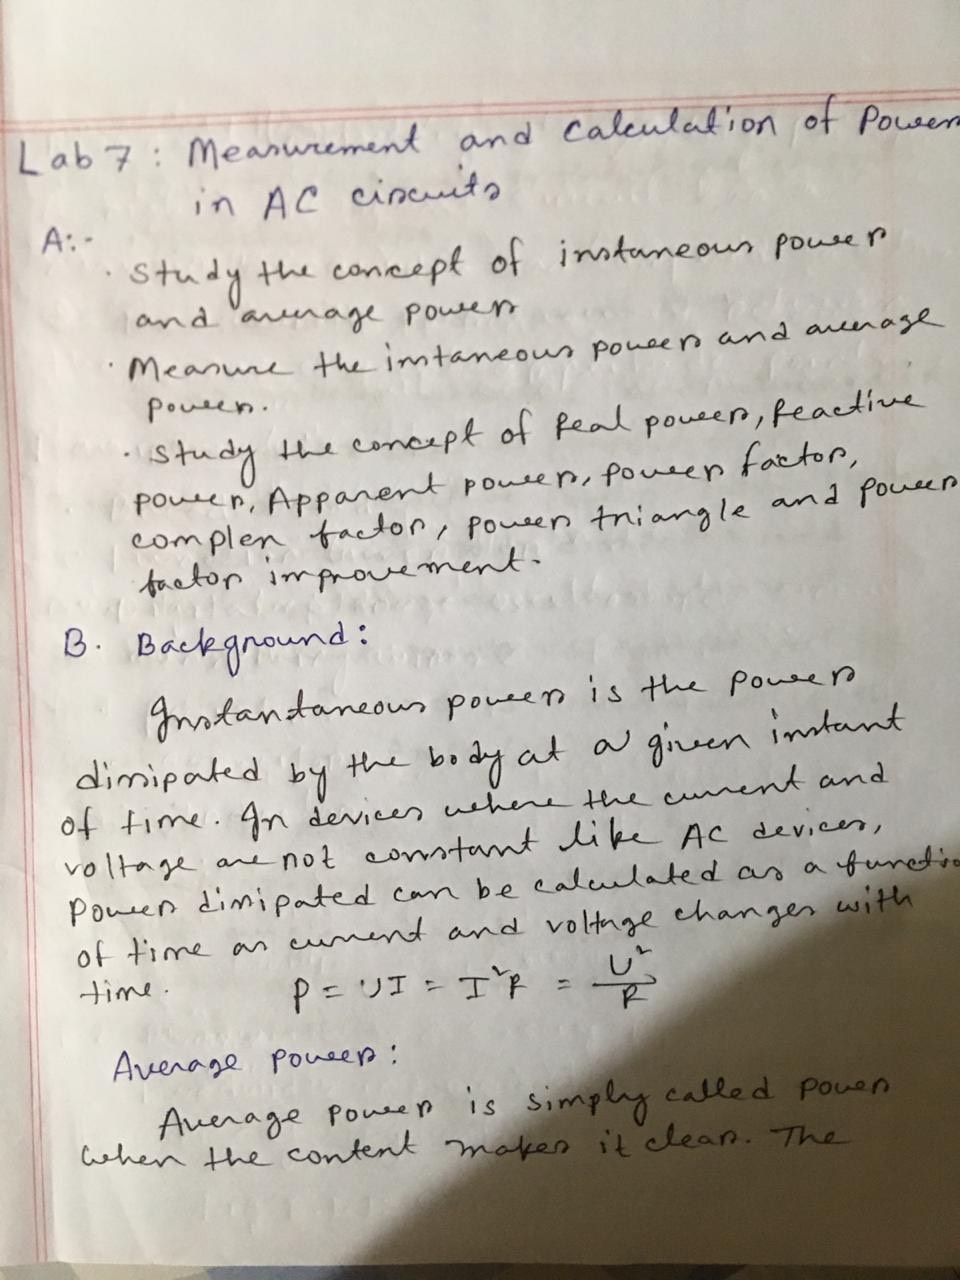 Lab 7 : Measurement and Calculation of Power
in AC circuits
A:-
· Study the concept of instaneous power
and average power
· Measure the instaneous power and average
power.
· Study the concept of Real power, Reactive
power, Apparent power, power factor,
complex factor, power triangle and power
factor improvement.
B. Background:
Instantaneous power is the power
dissipated by the body at a given instant
of time. In devices where the current and
voltage are not constant like AC devices,
Power dissipated can be calculated as a functio
of time as current and voltage changes with
time. P = UI = I²R = U²/R
Average power:
Average power is simply called power
when the content makes it clear. The